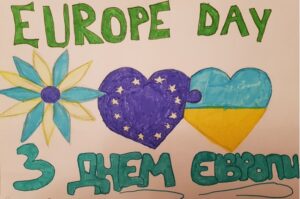 EUROPE DAY
З ДНЕМ ЄВРОПИ